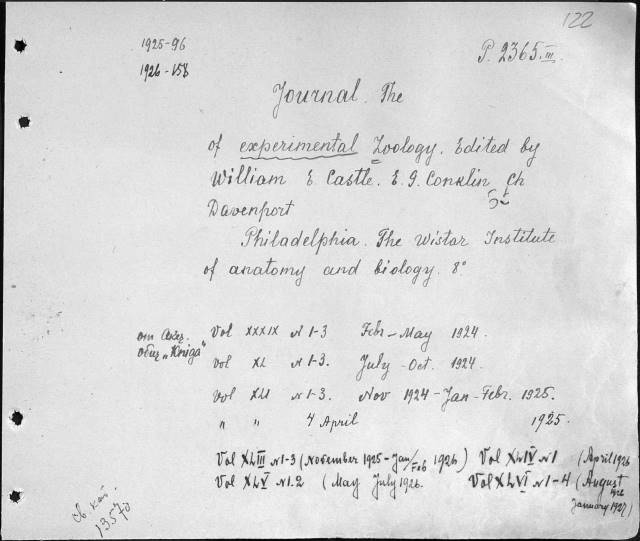 122
1925-96
1926-158
P. 2365.III.
Journal. The
of experimental Zoology. Edited by
William E. Castle. E. G. Conklin Ch
Davenport
Philadelphia. The Wistar Institute
of anatomy and biology. 8°
от Акц.
общ. „Kniga"
Vol XXXIX N 1-3 Febr-May 1924.
Vol XL N 1-3. July-Oct. 1924.
Vol XLI N 1-3. Nov 1924-Jan-Febr. 1925.
" " 4 April 1925.
Vol XLIII N1-3 (November 1925-Jan/Feb 1926) Vol XLIV N1 (April 1926
Vol XLV N1.2 (May July 1926. Vol XLVI N1-4 (August
1926
January 1927)
св. кат.
13570